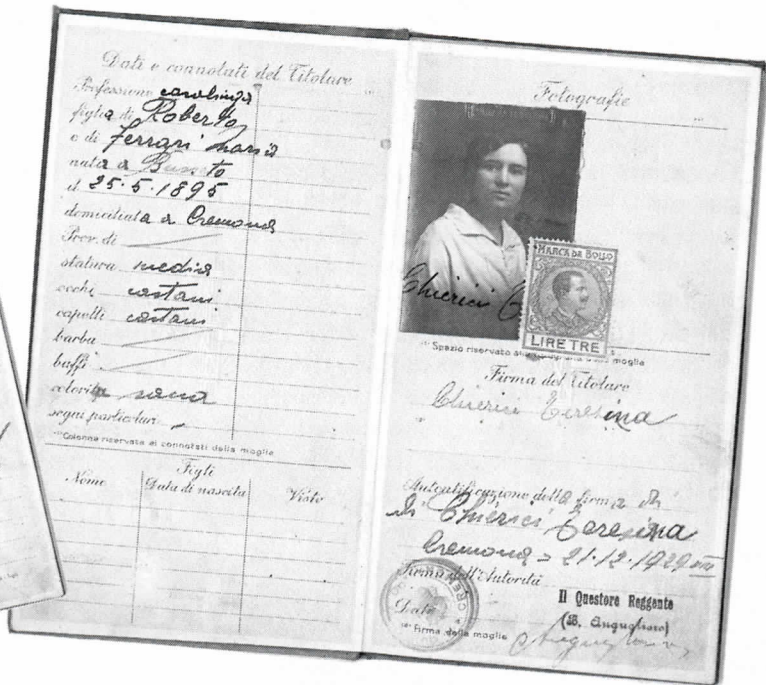 Dati e connotati del Titolare
Professione casalinga
figlia di Roberto
e di Ferrari Maria
nata a Busseto
il 25·5·1895
domiciliata a Cremona
Prov. di
statura media
occhi castani
capelli castani
barba
baffi
colorito sano
segni particolari
Colonna riservata ai connotati della moglie
Figli
Nome Data di nascita Visto
Fotografie
Chierici
MARCA DA BOLLO
LIRE TRE
Spazio riservato alla fotografia della moglie
Firma del Titolare
Chierici Teresina
Autentificazione della firma di
di Chierici Teresina
Cremona = 21·12·1929 VIII
Firma dell'Autorità
Il Questore Reggente
Firma della moglie